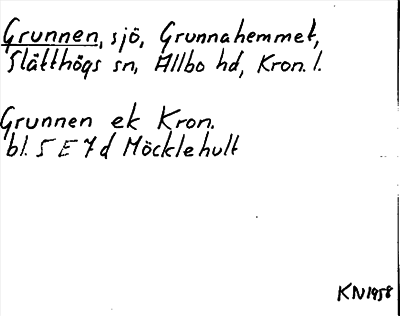 Grunnen, sjö, Grunnahemmet,
Slätthögs sn, Allbo hd, Kron. l.
Grunnen ek Kron.
bl. 5 E 7 d Möcklehult
KN 1958